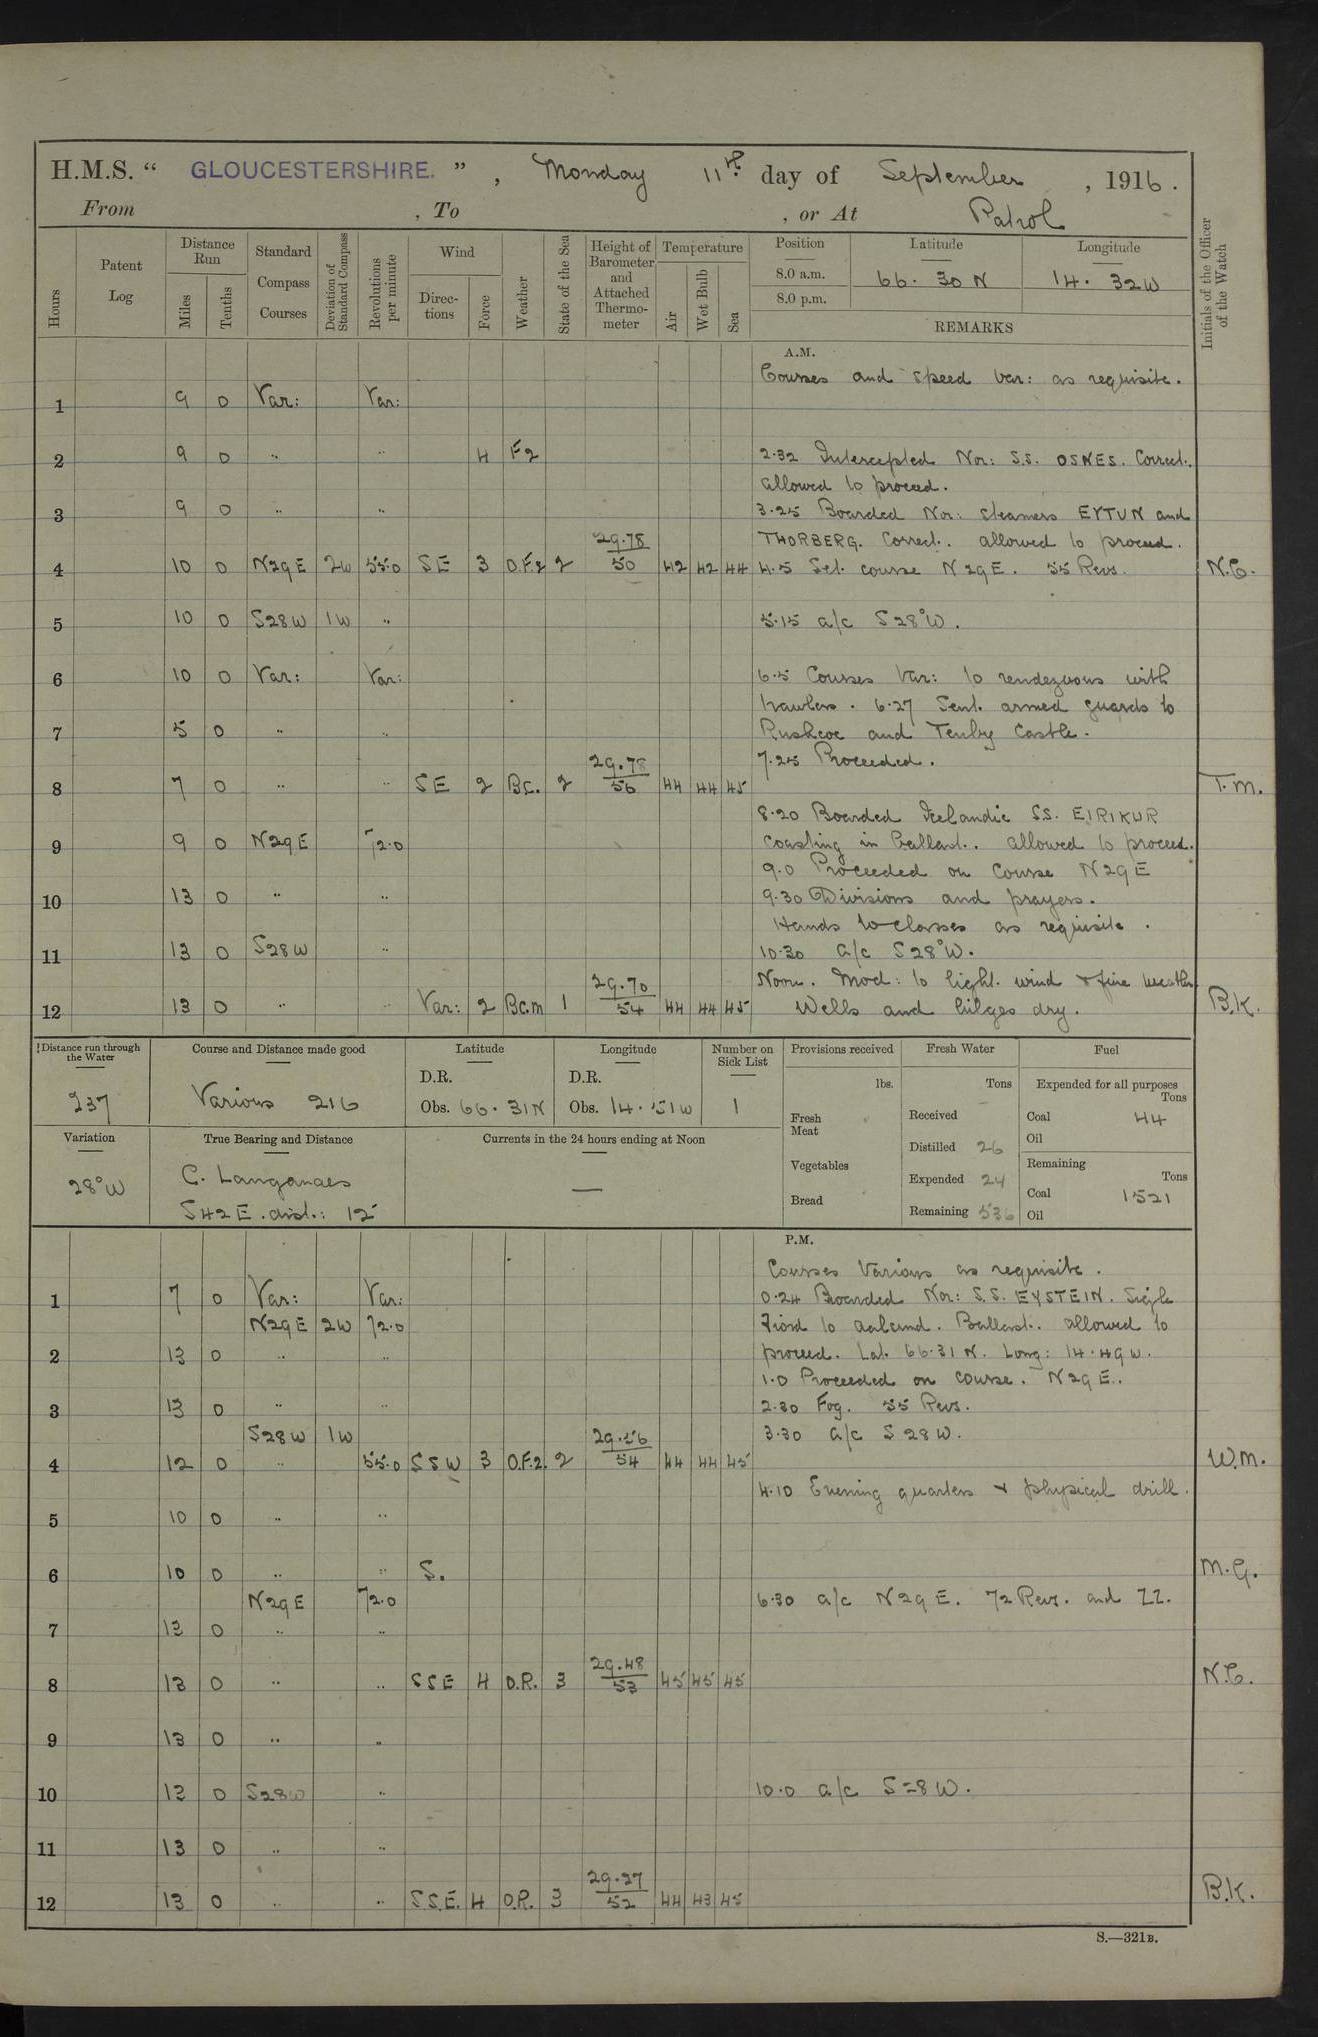 H.M.S. “ GLOUCESTERSHIRE. ” , Monday 11th. day of September , 1916.
From , To , or At Patrol
Hours
Patent Log
Distance Run
Miles
Tenths
Standard Compass Courses
Deviation of Standard Compass
Revolutions per minute
Wind
Directions
Force
Weather
State of the Sea
Height of Barometer and Attached Thermometer
Temperature
Air
Wet Bulb
Sea
Position Latitude Longitude
8.0 a.m. 66. 30 N 14. 32W
8.0 p.m.
REMARKS
Initials of the Officer of the Watch
A.M.
Courses and speed var: as requisite.
1 9 0 Var: Var:
2 9 0 " " 4 F2 2.32 Intercepted Nor: S.S. OSKES. Correct.
allowed to proceed.
3 9 0 " " 3.25 Boarded Nor: steamers EYTUN and
29.78 THORBERG. Correct. allowed to proceed.
4 10 0 N29E 2W 55.0 SE 3 O.F.2 2 50 42 42 44 4.5 Set course N29E. 55 Revs. N.C.
5 10 0 S28W 1W " 5.15 a/c S28°W.
6 10 0 Var: Var: 6.5 Courses Var: to rendezvous with
trawlers. 6.27 Sent armed guards to
7 5 0 " " Rushcoe and Tenby Castle.
29.78 7.25 Proceeded.
8 7 0 " " SE 2 Bc. 2 56 44 44 45 T.M.
8.20 Boarded Icelandic S.S. EIRIKUR
9 9 0 N29E 72.0 coasting in Ballast. allowed to proceed.
9.0 Proceeded on Course N29E
10 13 0 " " 9.30 Divisions and prayers.
Hands to classes as requisite.
11 13 0 S28W " 10.30 a/c S28°W.
29.70 Noon. Mod: to light wind & fine weather
12 13 0 " " Var: 2 Bc.m 1 54 44 44 45 Wells and bilges dry. B.K.
Distance run through the Water
237
Course and Distance made good
Various 216
Latitude
D.R.
Obs. 66. 31N
Longitude
D.R.
Obs. 14.51W
Number on Sick List
1
Provisions received
lbs.
Fresh Meat
Vegetables
Bread
Fresh Water
Tons
Received
Distilled 26
Expended 24
Remaining 536
Fuel
Expended for all purposes
Tons
Coal 44
Oil
Remaining
Tons
Coal 1521
Oil
Variation
28°W
True Bearing and Distance
C. Langanaes
S42E. dist.: 12
Currents in the 24 hours ending at Noon
—
P.M.
Courses Various as requisite.
1 7 0 Var: Var: 0.24 Boarded Nor: S.S. EYSTEIN. Sigle
N29E 2W 72.0 Fiord to Aalesund. Ballast. allowed to
2 13 0 " " proceed. Lat. 66.31N. Long: 14.49W.
1.0 Proceeded on course. N29E.
3 13 0 " " 2.30 Fog. 55 Revs.
S28W 1W 29.56 3.30 a/c S28W.
4 12 0 " 55.0 SSW 3 O.F.2. 2 54 44 44 45 W.M.
4.10 Evening quarters & physical drill.
5 10 0 " "
6 10 0 " " S. M.G.
N29E 72.0 6.30 a/c N29E. 72 Revs. and ZZ.
7 13 0 " "
29.48
8 13 0 " " SSE 4 O.R. 3 53 45 45 45 N.C.
9 13 0 " "
10 13 0 S28W " 10.0 a/c S28W.
11 13 0 " "
29.27
12 13 0 " " S.S.E. 4 O.R. 3 52 44 43 45 B.K.
S.—321B.